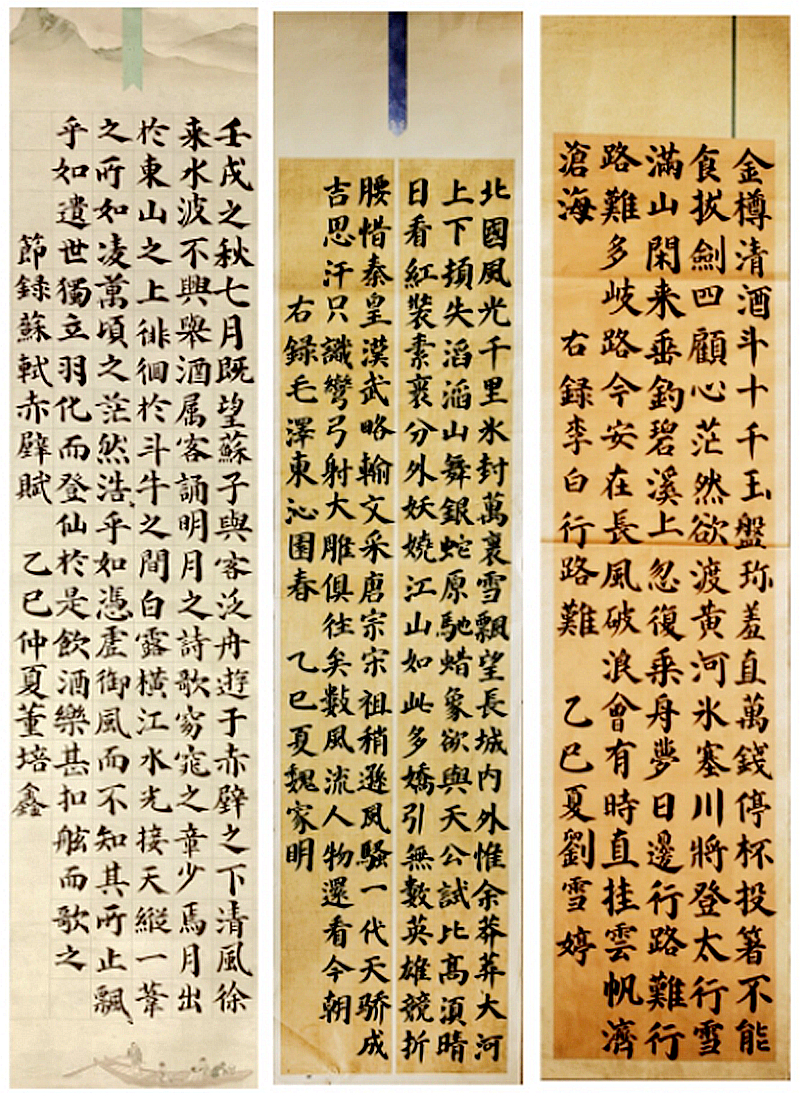 金樽清酒斗十千玉盤珎羞直萬錢停杯投箸不能
食拔劍四顧心茫然欲渡黄河氷塞川將登太行雪
滿山閑来垂釣碧溪上忽復乘舟夢日邊行路難行
路難多岐路今安在長風破浪會有時直挂雲帆濟
滄海 右録李白行路難 乙巳夏劉雪婷
北國風光千里氷封萬裏雪飄望長城内外惟余莽莽大河
上下頓失滔滔山舞銀蛇原馳蜡象欲與天公試比髙湏晴
日看紅裝素裹分外妖嬈江山如此多嬌引無數英雄競折
腰惜秦皇漢武略輸文采唐宗宋祖稍遜風騷一代天骄成
吉思汗只識彎弓射大雕俱往矣數風流人物還看今朝
右録毛澤東沁園春 乙巳夏魏家明
壬戌之秋七月既望蘇子與客泛舟遊于赤壁之下清風徐
来水波不興舉酒属客誦明月之詩歌窈窕之章少焉月出
於東山之上徘徊於斗牛之間白露橫江水光接天縦一葦
之所如凌萬頃之茫然浩乎如憑虛御風而不知其所止飄
乎如遺世獨立羽化而登仙於是飲酒樂甚扣舷而歌之
節録蘇軾赤壁賦 乙巳仲夏董培鑫